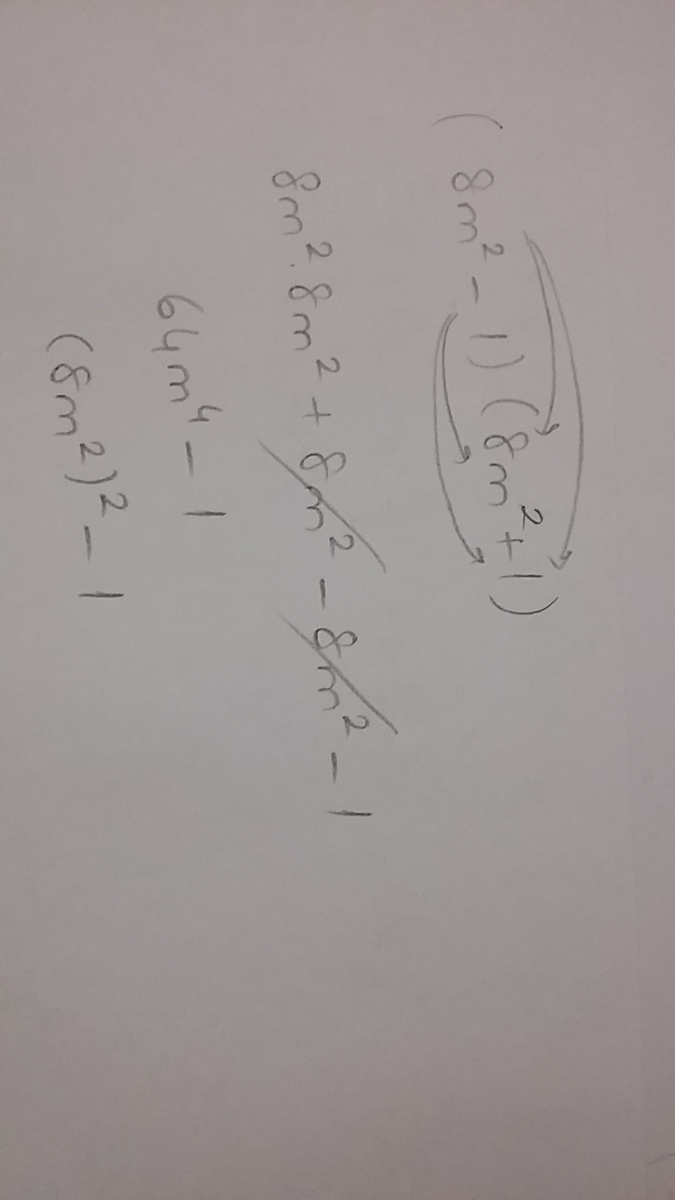 (8m² - 1)(8m² + 1)
8m² · 8m² + 8m² - 8m² - 1
64m⁴ - 1
(8m²)² - 1